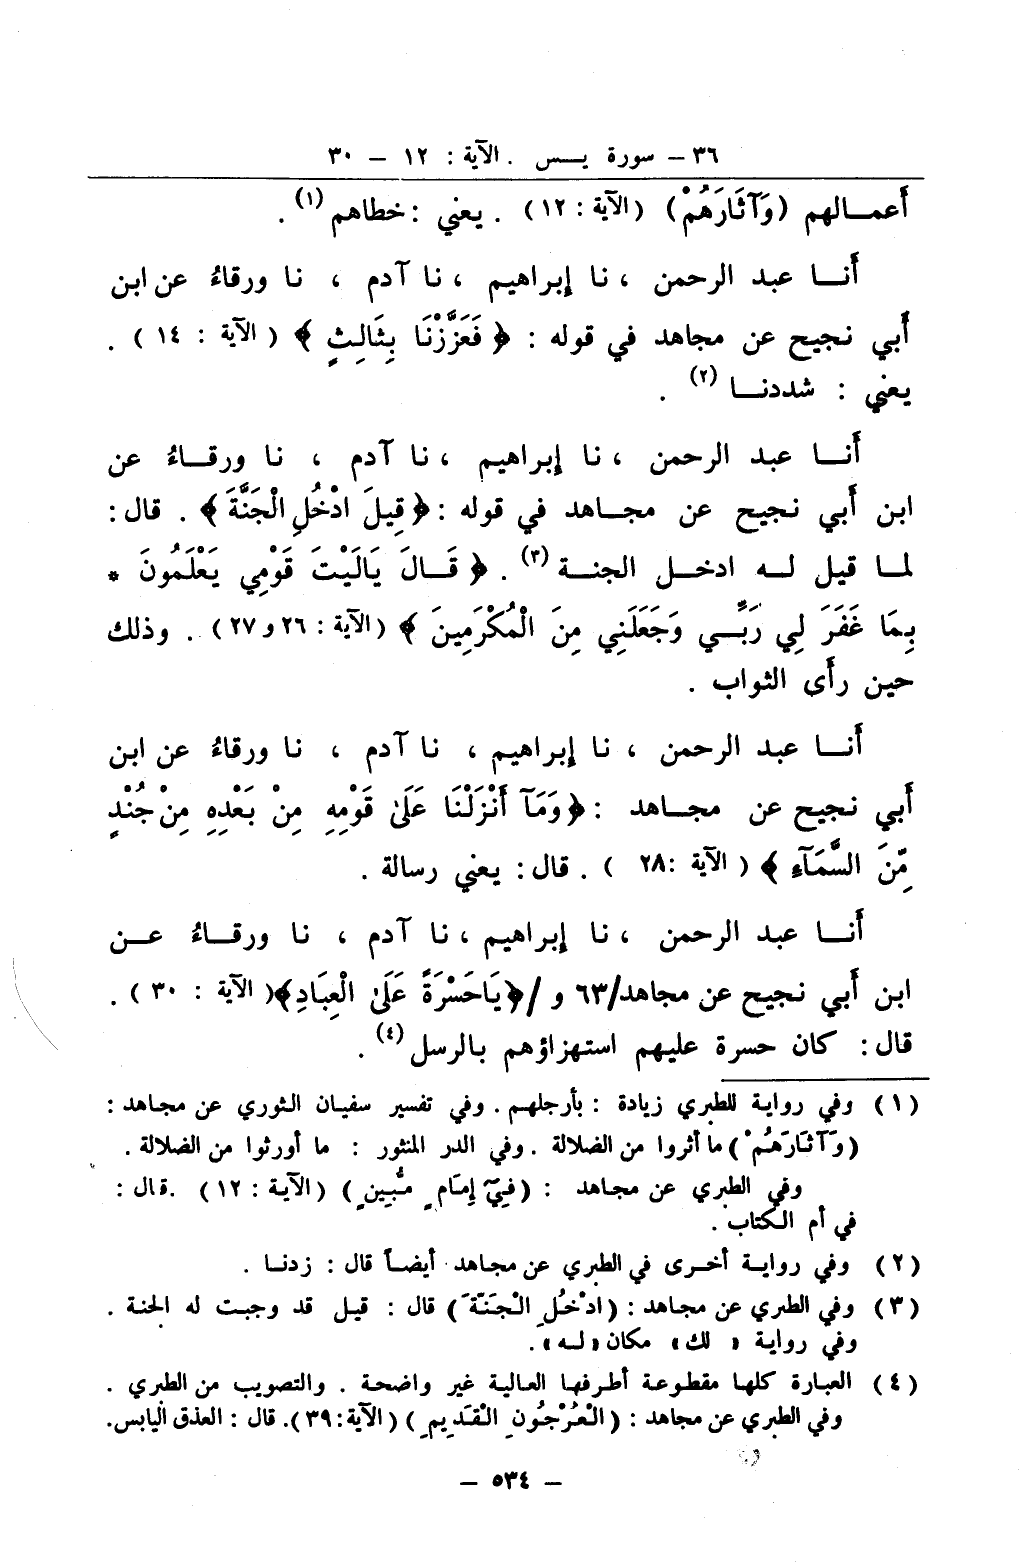 ٣٦ – سورة يــس . الآية : ١٢ – ٣٠
أَعمــالهم (وَآثَارَهُمْ) (الآية : ١٢) . يعني : خطاهم (١) .
أَنــا عبد الرحمن ، نا إبراهيم ، نا آدم ، نا ورقاءُ عن ابن
أَبي نجيح عن مجاهد في قوله : ﴿ فَعَزَّزْنَا بِثَالِثٍ ﴾ ( الآية : ١٤ ) .
يعني : شددنــا (٢) .
أَنــا عبد الرحمن ، نا إبراهيم ، نا آدم ، نا ورقــاءُ عن
ابن أَبي نجيح عن مجــاهد في قوله : ﴿ قِيلَ ادْخُلِ الْجَنَّةَ ﴾ . قال :
لمــا قيل لــه ادخــل الجنــة (٣) . ﴿ قَــالَ يَالَيْتَ قَوْمِي يَعْلَمُونَ *
بِمَا غَفَرَ لِي رَبِّــي وَجَعَلَنِي مِنَ الْمُكْرَمِينَ ﴾ (الآية : ٢٦ و ٢٧) . وذلك
حين رأَى الثواب .
أَنــا عبد الرحمن ، نا إبراهيم ، نا آدم ، نا ورقاءُ عن ابن
أَبي نجيح عن مجــاهد : ﴿ وَمَآ أَنْزَلْنَا عَلَىٰ قَوْمِهِ مِنْ بَعْدِهِ مِنْ جُنْدٍ
مِّنَ السَّمَآءِ ﴾ ( الآية : ٢٨ ) . قال : يعني رسالة .
أَنــا عبد الرحمن ، نا إبراهيم ، نا آدم ، نا ورقــاءُ عــن
ابن أَبي نجيح عن مجاهد/٦٣ و /﴿يَاحَسْرَةً عَلَىٰ الْعِبَادِ﴾( الآية : ٣٠ ) .
قال : كان حسرة عليهم استهزاؤهم بالرسل (٤) .
(١) وفي رواية للطبري زيادة : بأرجلهم . وفي تفسير سفيان الثوري عن مجاهد :
(وَآثَارَهُمْ ) ما أثروا من الضلالة . وفي الدر المنثور : ما أورثوا من الضلالة .
وفي الطبري عن مجاهد : (فِيٓ إِمَامٍ مُّبِينٍ) (الآية : ١٢) . قال :
في أم الكتاب .
(٢) وفي روايــة أخــرى في الطبري عن مجاهد أيضــاً قال : زدنــا .
(٣) وفي الطبري عن مجاهد : (ادْخُلِ الْجَنَّةَ) قال : قيل قد وجبت له الجنة .
وفي رواية « لك » مكان «لــه» .
(٤) العبارة كلها مقطوعة أطرفها العالية غير واضحة . والتصويب من الطبري .
وفي الطبري عن مجاهد : (الْعُرْجُونِ الْقَدِيمِ ) (الآية : ٣٩). قال : العذق اليابس.
– ٥٣٤ –